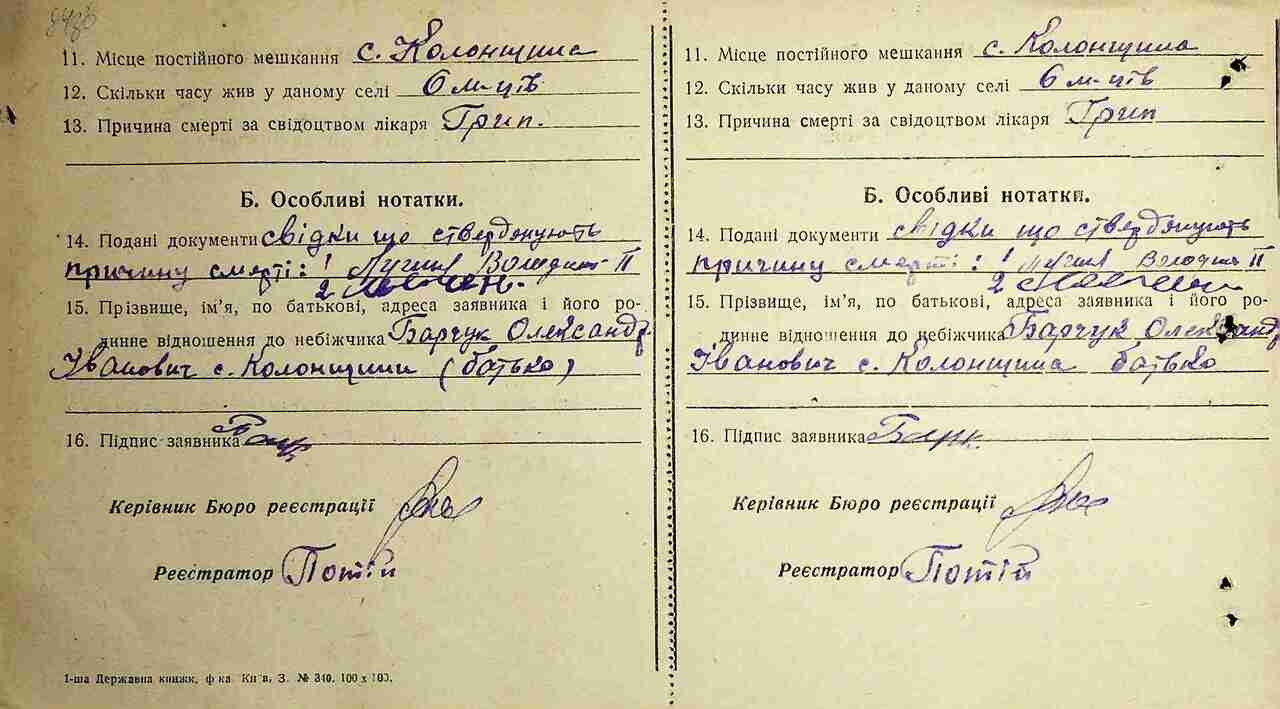 11. Місце постійного мешкання с. Колонщина
12. Скільки часу жив у даному селі 6 м-ців
13. Причина смерті за свідоцтвом лікаря Грип.
Б. Особливі нотатки.
14. Подані документи свідки що стверджують
причину смерті: 1
2
15. Прізвище, ім’я, по батькові, адреса заявника і його ро-
динне відношення до небіжчика Барчук Олександр
Іванович с. Колонщини (батько)
16. Підпис заявника
Керівник Бюро реєстрації
Реєстратор Потій
1-ша Державна книжк. ф-ка. Київ, З. № 340. 100 x 100.
11. Місце постійного мешкання с. Колонщина
12. Скільки часу жив у даному селі 6 м-ців
13. Причина смерті за свідоцтвом лікаря Грип
Б. Особливі нотатки.
14. Подані документи свідки що стверджують
причину смерті: 1
2
15. Прізвище, ім’я, по батькові, адреса заявника і його ро-
динне відношення до небіжчика Барчук Олександр
Іванович с. Колонщина батько
16. Підпис заявника Барк.
Керівник Бюро реєстрації
Реєстратор Потій